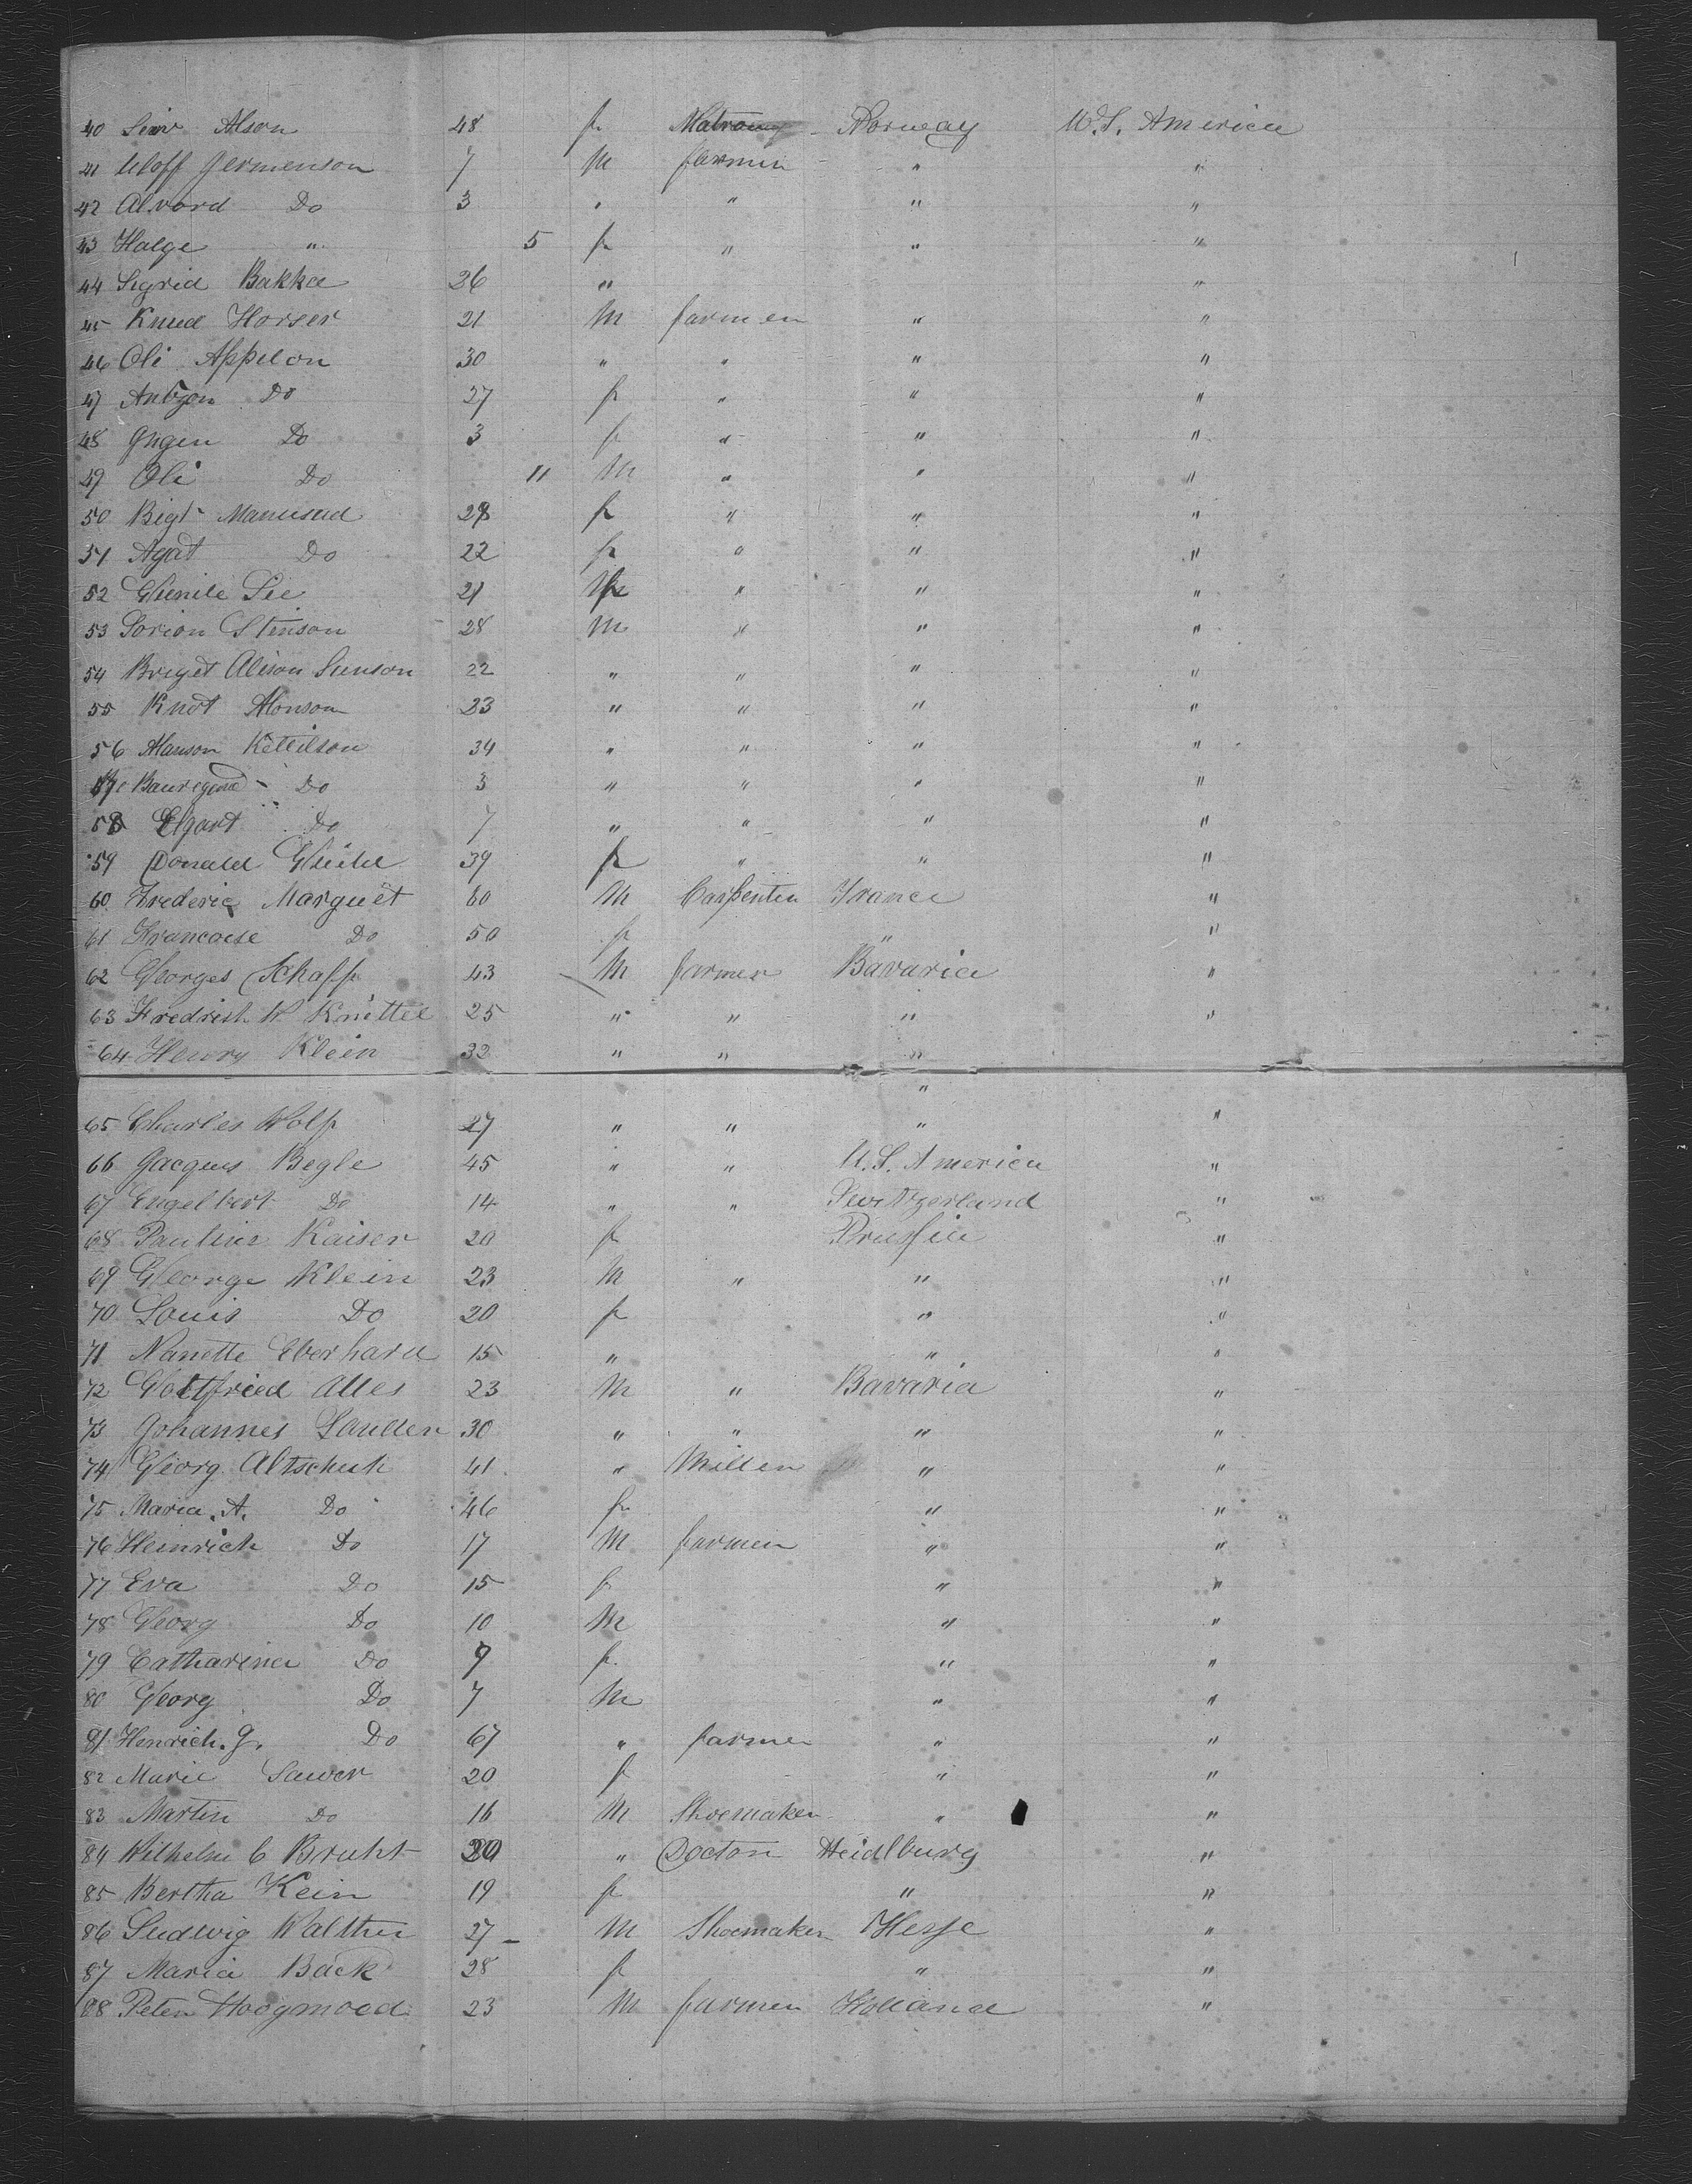 40 Alson 48 f Norway U.S. America
41 Uloff Jermenson 7 M farmer " "
42 Alvard Do 3 " " " "
43 Halge " 5 f " " "
44 Sigrid Bakka 36 " "
45 Knud Horser 21 M farmer " "
46 Oli Appelon 30 " " " "
47 Do 27 f " " "
48 Ingen Do 3 f " " "
49 Oli Do 11 M " " "
50 28 f " " "
51 Agat Do 22 f " " "
52 21 " " "
53 Stenson 28 M " " "
54 Briget Alison 22 " " " "
55 Knot Alonson 23 " " " "
56 Kettilson 34 " " " "
57 Do 3 " " " "
58 Elgart Do 7 " " " "
59 Donald 39 f " " "
60 Frederic Marguet 60 M Carpenter France "
61 Francoise Do 50 f " "
62 Georges Schaff 43 M farmer Bavaria "
63 W. Knittel 25 " " " "
64 Henry Klein 32 " " "
"
65 Charles Wolf 27 " " " "
66 Jacques Begle 45 " " U.S. America "
67 Engelbert Do 14 " " Switzerland "
68 Pauline Kaiser 20 f Prussia "
69 George Klein 23 M " " "
70 Louis Do 20 f " "
71 Nanette Eberhard 15 " " "
72 Gottfried Alles 23 M " Bavaria "
73 Johannes 30 " " " "
74 Georg Altschuh 41 " Miller " "
75 Maria. A. Do 46 f " "
76 Heinrich Do 17 M farmer " "
77 Eva Do 15 f " "
78 Georg Do 10 M " "
79 Catharina Do 9 f. " "
80 Georg Do 7 M " "
81 Henrich. J. Do 67 " farmer " "
82 Marie Sawer 20 f " "
83 Martin Do 16 M Shoemaker " "
84 Wilhelm C 20 " Doctor Heidlburg "
85 Bertha Kein 19 f " "
86 Ludwig Walther 27 M Shoemaker Hesse "
87 Maria Back 28 f " "
88 Peter Hoogmoed 23 M farmer Holland "